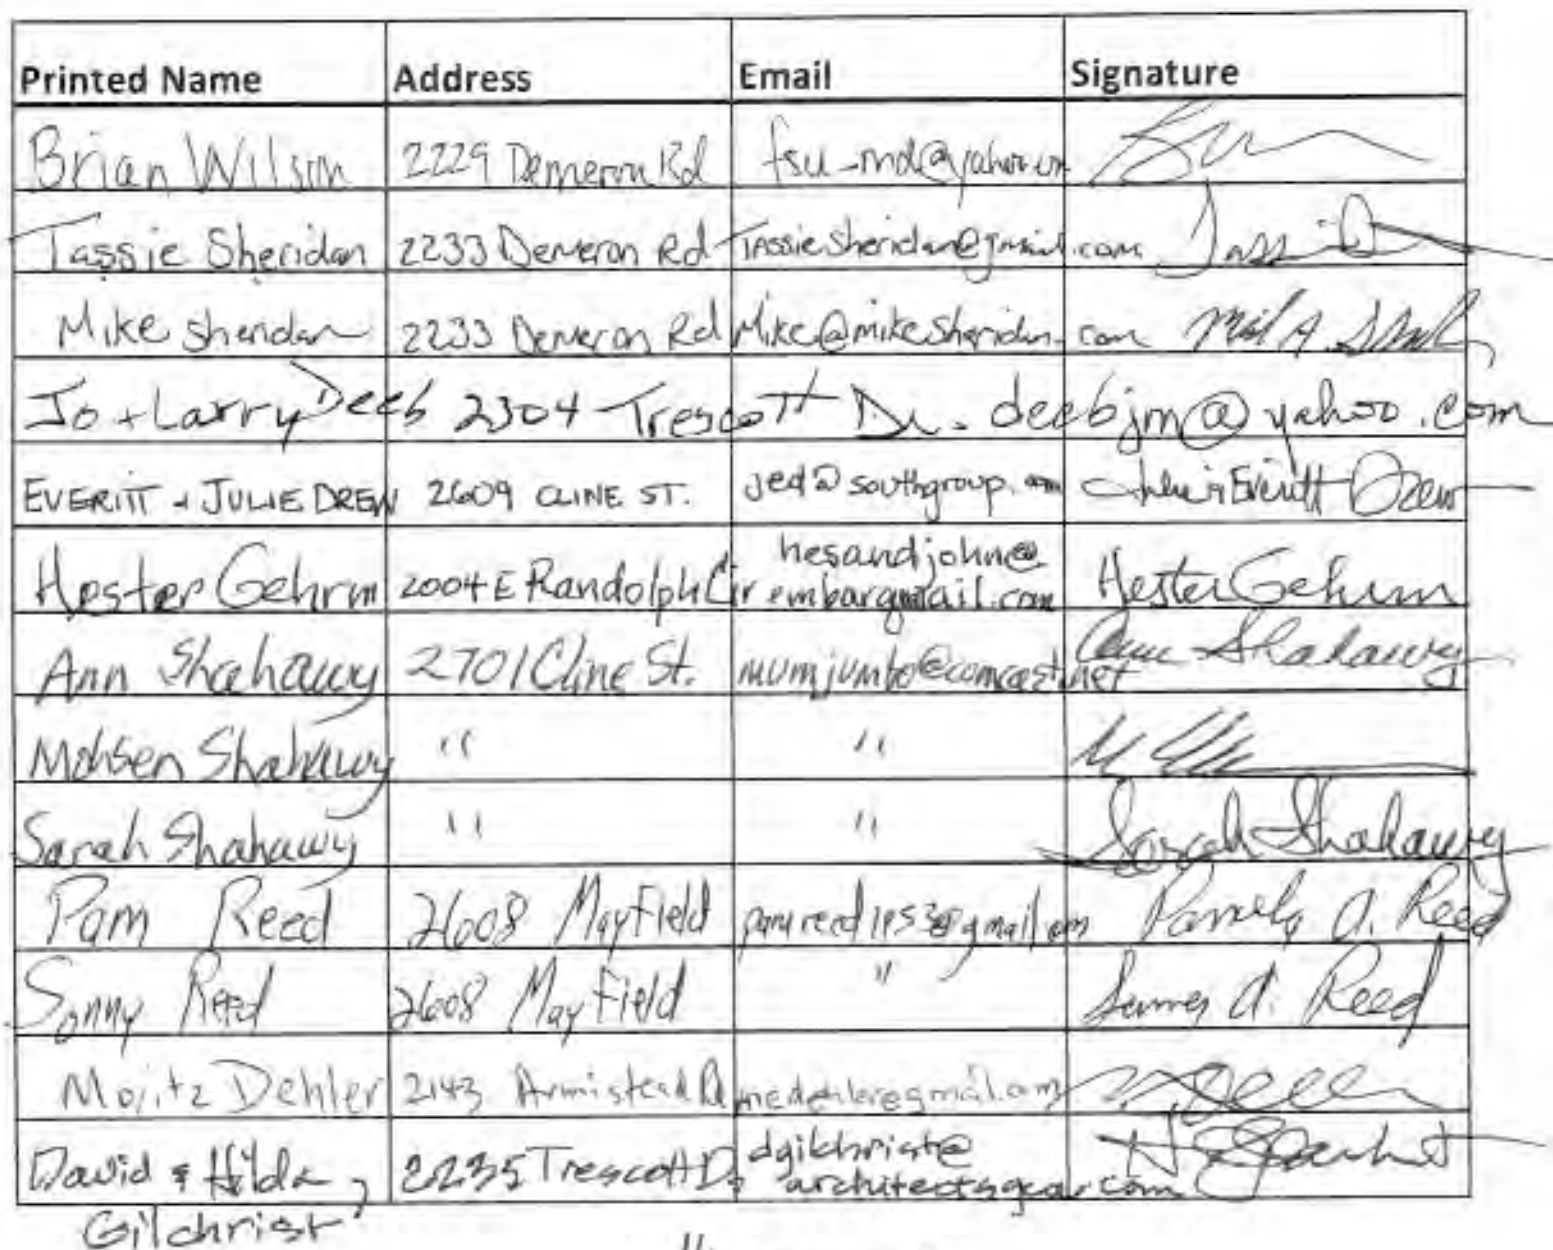 Printed Name Address Email Signature
Brian Wilson 2229 Demeron Rd fsu_md@yahoo.com
Tassie Sheridan 2233 Demeron Rd TassieSheridan@gmail.com
Mike Sheridan 2233 Demeron Rd Mike@mikesheridan.com
Jo + Larry Deeb 2304 Trescott Dr. deebjm@yahoo.com
EVERITT + JULIE DREW 2609 CLINE ST. jed@southgroup.com Julie & Everitt Drew
Hester Gehrm 2004 E Randolph Cir hesandjohn@ Hester Gehrm
embarqmail.com
Ann Shahawy 2701 Cline St. mumjumbo@comcast.net Ann Shahawy
Mohsen Shahawy " "
Sarah Shahawy " " Sarah Shahawy
Pam Reed 2608 Mayfield Pamela A. Reed
Sonny Reed 2608 Mayfield " A. Reed
Dehler 2143 Armistead Rd
David & Hilda 2235 Trescott Dr dgilchrist@
architectsgear.com
Gilchrist